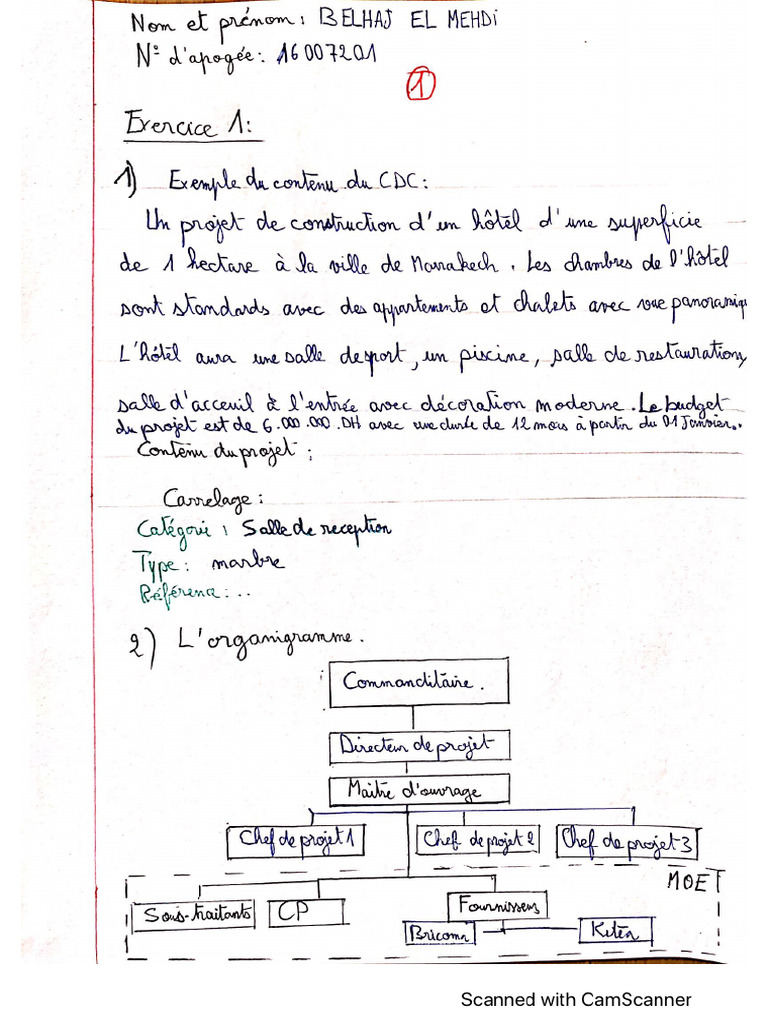 Nom et prénom : BELHAJ EL MEHDi
N° d'apogée : 16007201
1
Exercice 1:
1) Exemple du contenu du CDC :
Un projet de construction d'un hôtel d'une superficie
de 1 hectare à la ville de Marrakech. Les chambres de l'hôtel
sont standards avec des appartements et chalets avec vue panoramiq
L'hôtel aura une salle de sport, un piscine, salle de restauration,
salle d'acceuil à l'entrée avec décoration moderne. Le budget
du projet est de 6.000.000.DH avec une durée de 12 mois à partir du 01 Janvier..
Contenu du projet :
Carrelage :
Catégorie : Salle de reception
Type : marbre
Référence : ..
2) L'organigramme.
Commanditaire.
Directeur de projet
Maître d'ouvrage
Chef de projet 1 Chef de projet 2 Chef de projet 3
MOE
Sous-traitants CP Fournisseurs
Bricoma Kitea
Scanned with CamScanner